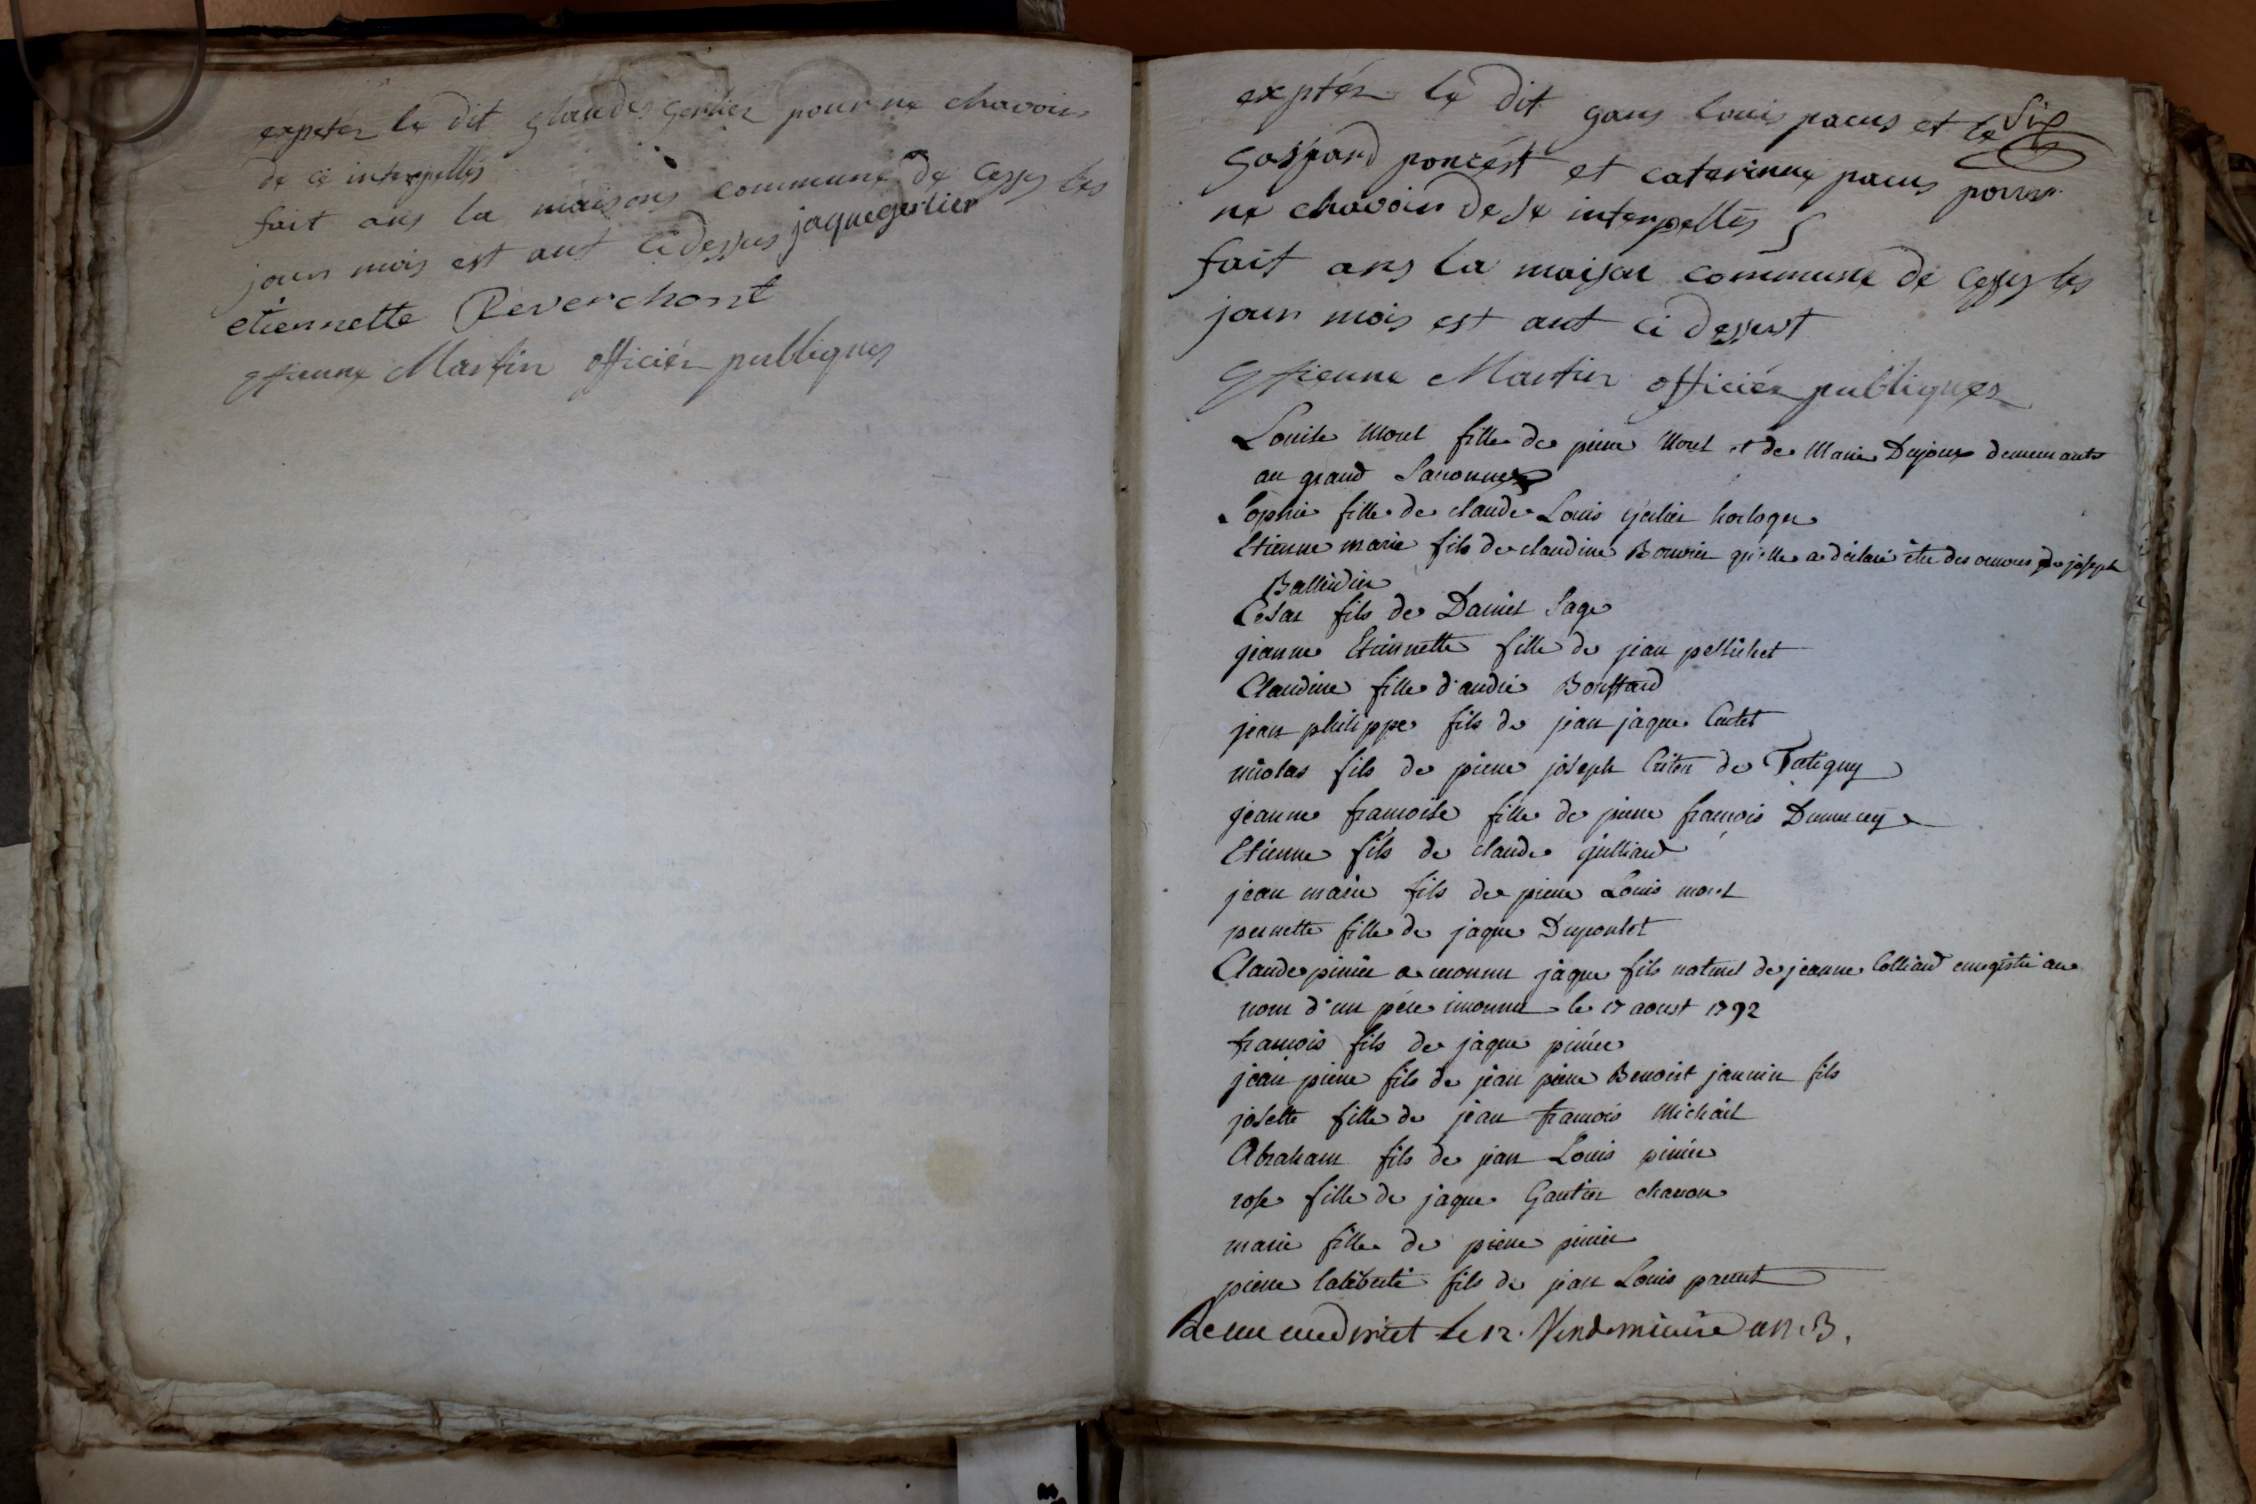 expetér le dit glaude gerlier pour ne chavoir
de ce interpellés
fait ans la maisons commune de Cessy les
jour mois est ant ci dessus jaque gerlier
etiennette Reverchont
etienne Martin officiér publiques
exptér le dit gans louis pacus et le Six
gaspard poncést et caterinne pacus pour
ne chavoir de se interpellés
fait ans la maison commune de Cessy les
jour mois est ant ci dessust
etienne Martin officiér publiques
Louise Morel fille de pierre Morel et de Marie Dujoux demeurants
au grand Saconnex
Sophie fille de claude Louis gerlier horloger
Etienne marie fils de claudine Bouvier qu'elle a déclaré être des oeuvres de joseph
Ballivdier
César fils de Daniel Sage
jeanne Etiennette fille de jean pellichet
Claudine fille d'andré Bouffard
jean philippe fils de jean jaque Cuttet
nicolas fils de pierre joseph Criton de Tatigny
jeanne francoise fille de pierre francois Dumurcey
Etienne fils de claude gulliard
jean marie fils de pierre Louis morel
pernette fille de jaque Dupontet
Claude prinier a reconnu jaque fils naturel de jeanne Colliard enregistré au
nom d'un père inconnu le 17 aoust 1792
francois fils de jaque prinier
jean pierre fils de jean pierre Benoist jannin fils
josette fille de jean francois Michail
Abraham fils de jean Louis prinier
rose fille de jaque Gautier charon
marie fille de pierre prinier
pierre laliberté fils de jean Louis panut
le 12. Vendemiaire an. 3.